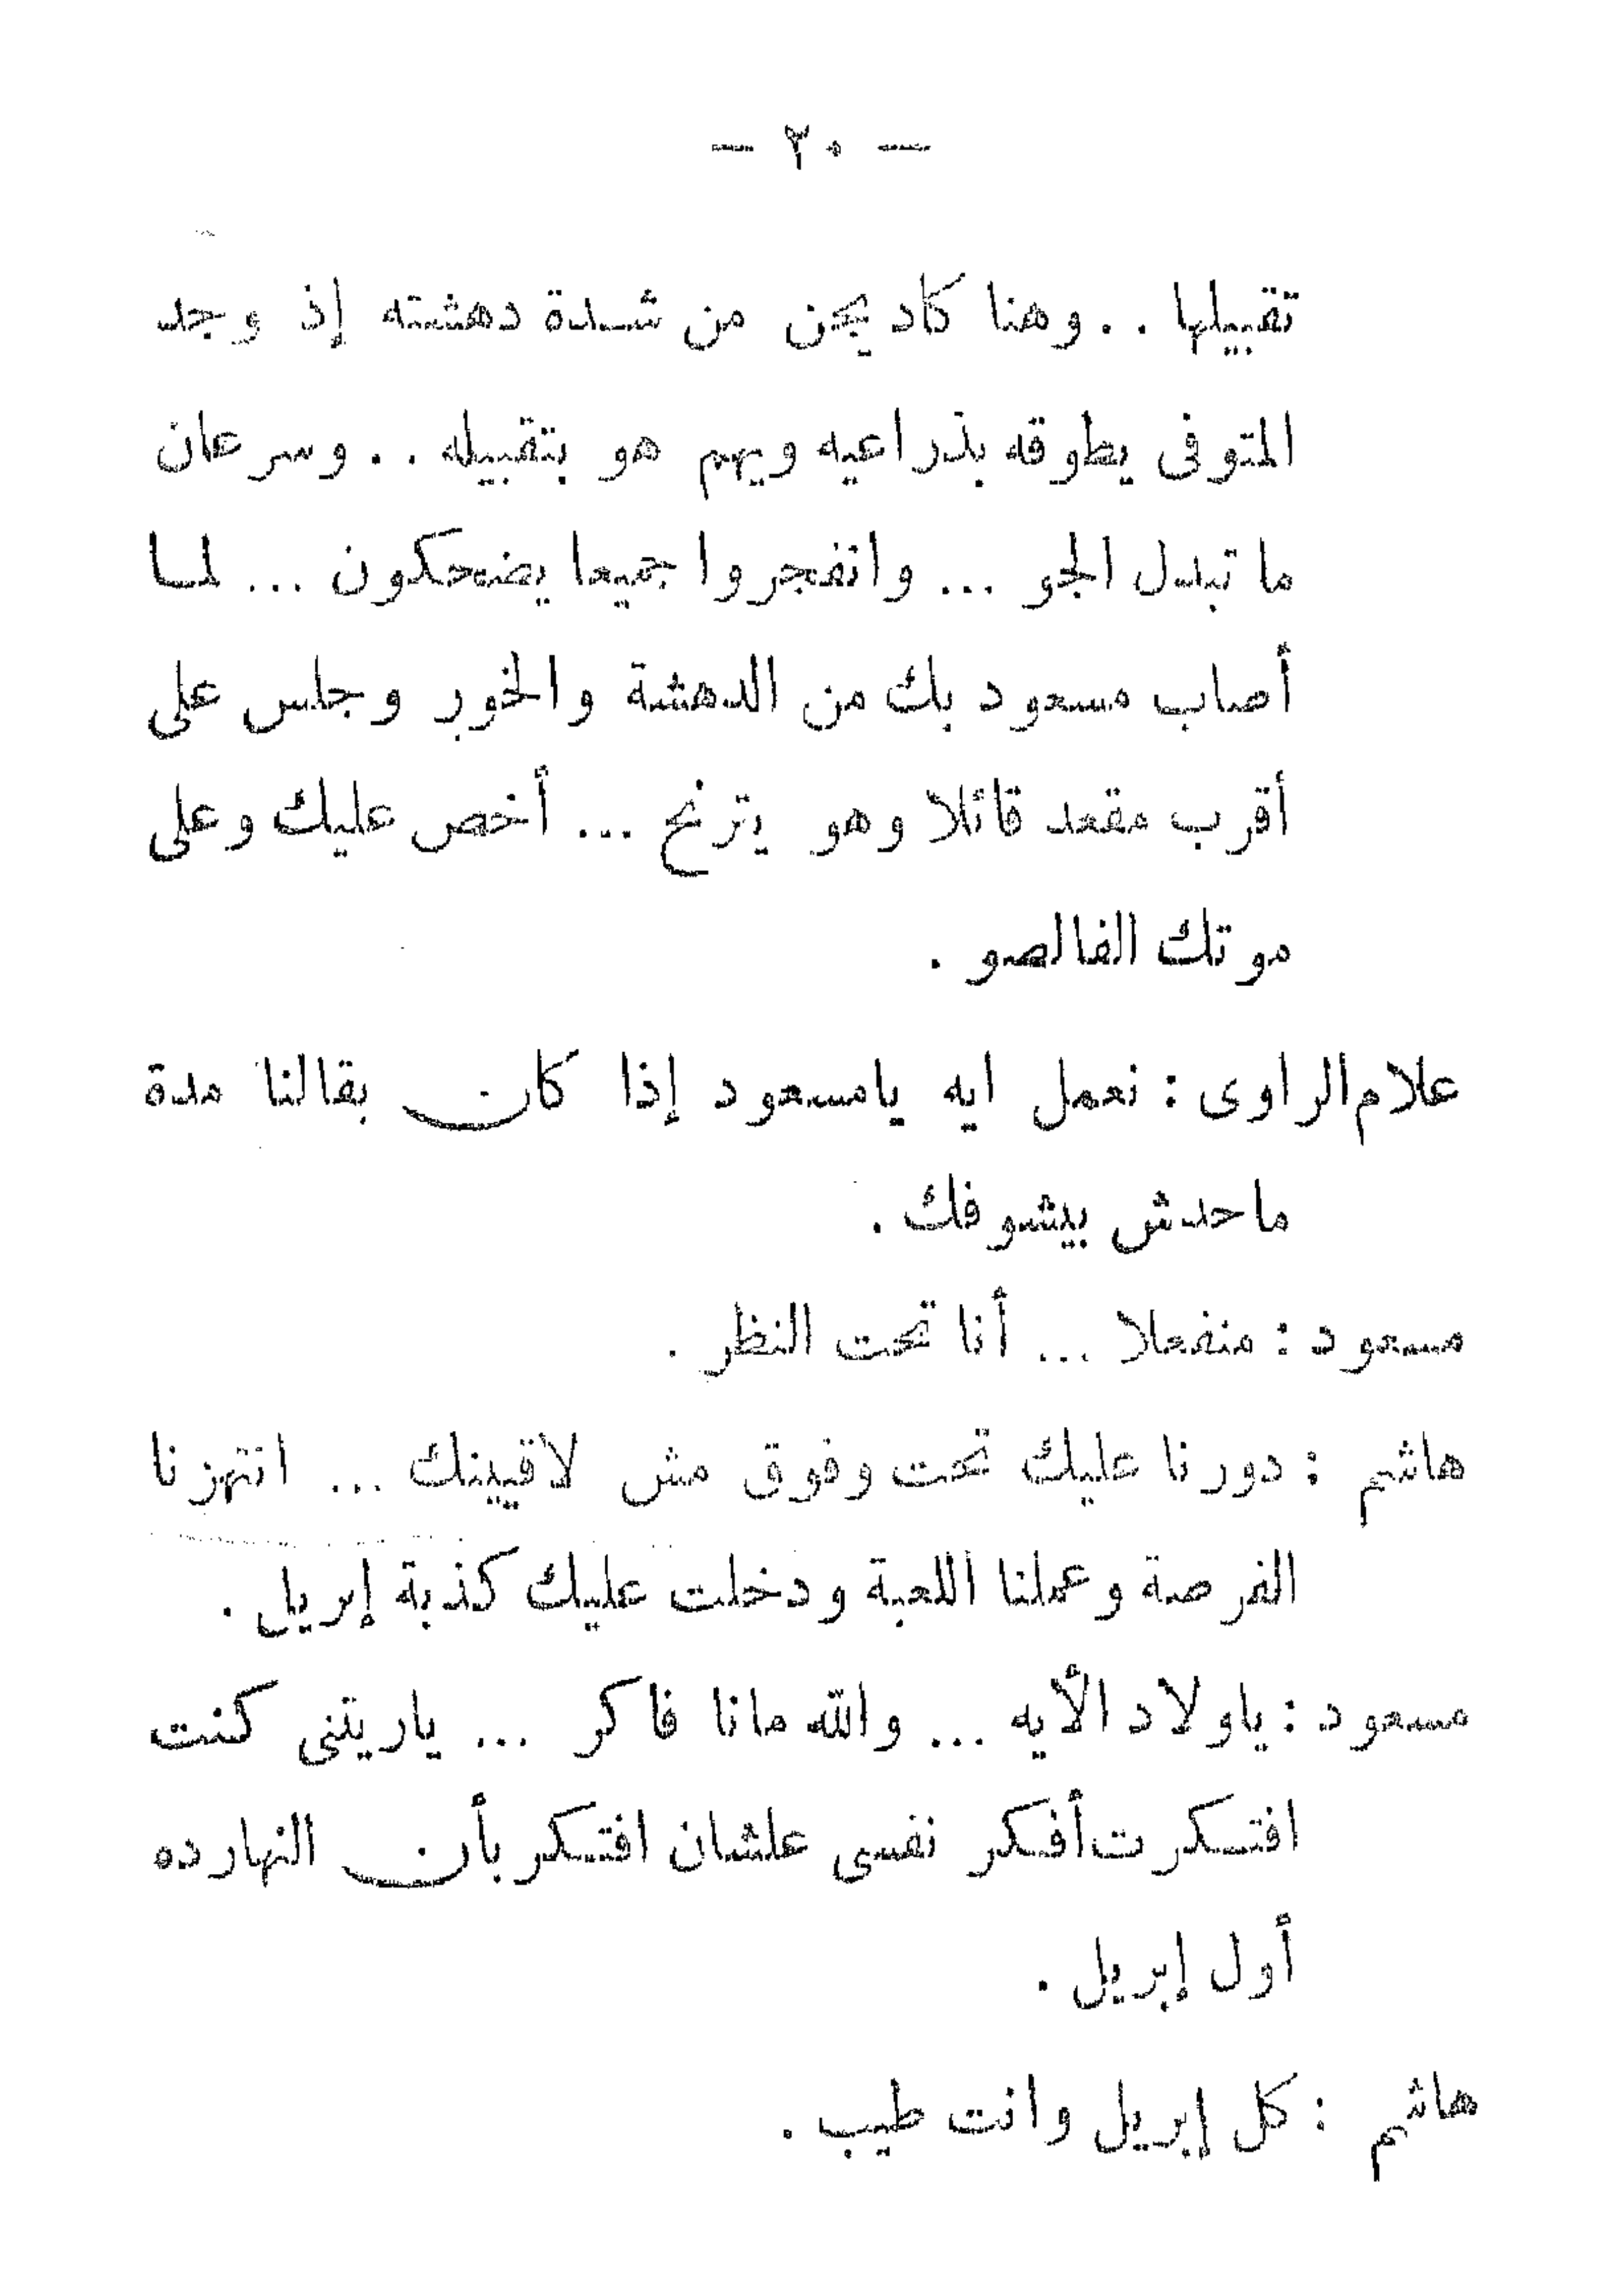 — ٢٠ —
تقبيلها . . وهنا كاد يجن من شدة دهشته إذ وجد
المتوفى يطوقه بذراعيه ويهم هو بتقبيله . . وسرعان
ما تبدل الجو ... وانفجروا جميعا يضحكون ... لما
أصاب مسعود بك من الدهشة والخور وجلس على
أقرب مقعد قائلا وهو يترنح ... أخص عليك وعلى
موتك الفالصو .
علام الراوى : نعمل ايه يامسعود إذا كان بقالنا مدة
ماحدش بيشوفك .
مسعود : منفعلا ... أنا تحت النظر .
هاشم : دورنا عليك تحت وفوق مش لاقيينك ... انتهزنا
الفرصة وعملنا اللعبة ودخلت عليك كذبة إبريل .
مسعود : ياولاد الأيه ... والله مانا فاكر ... ياريتنى كنت
افتكرت أفكر نفسى علشان افتكر بأن النهارده
أول إبريل .
هاشم : كل إبريل وانت طيب .